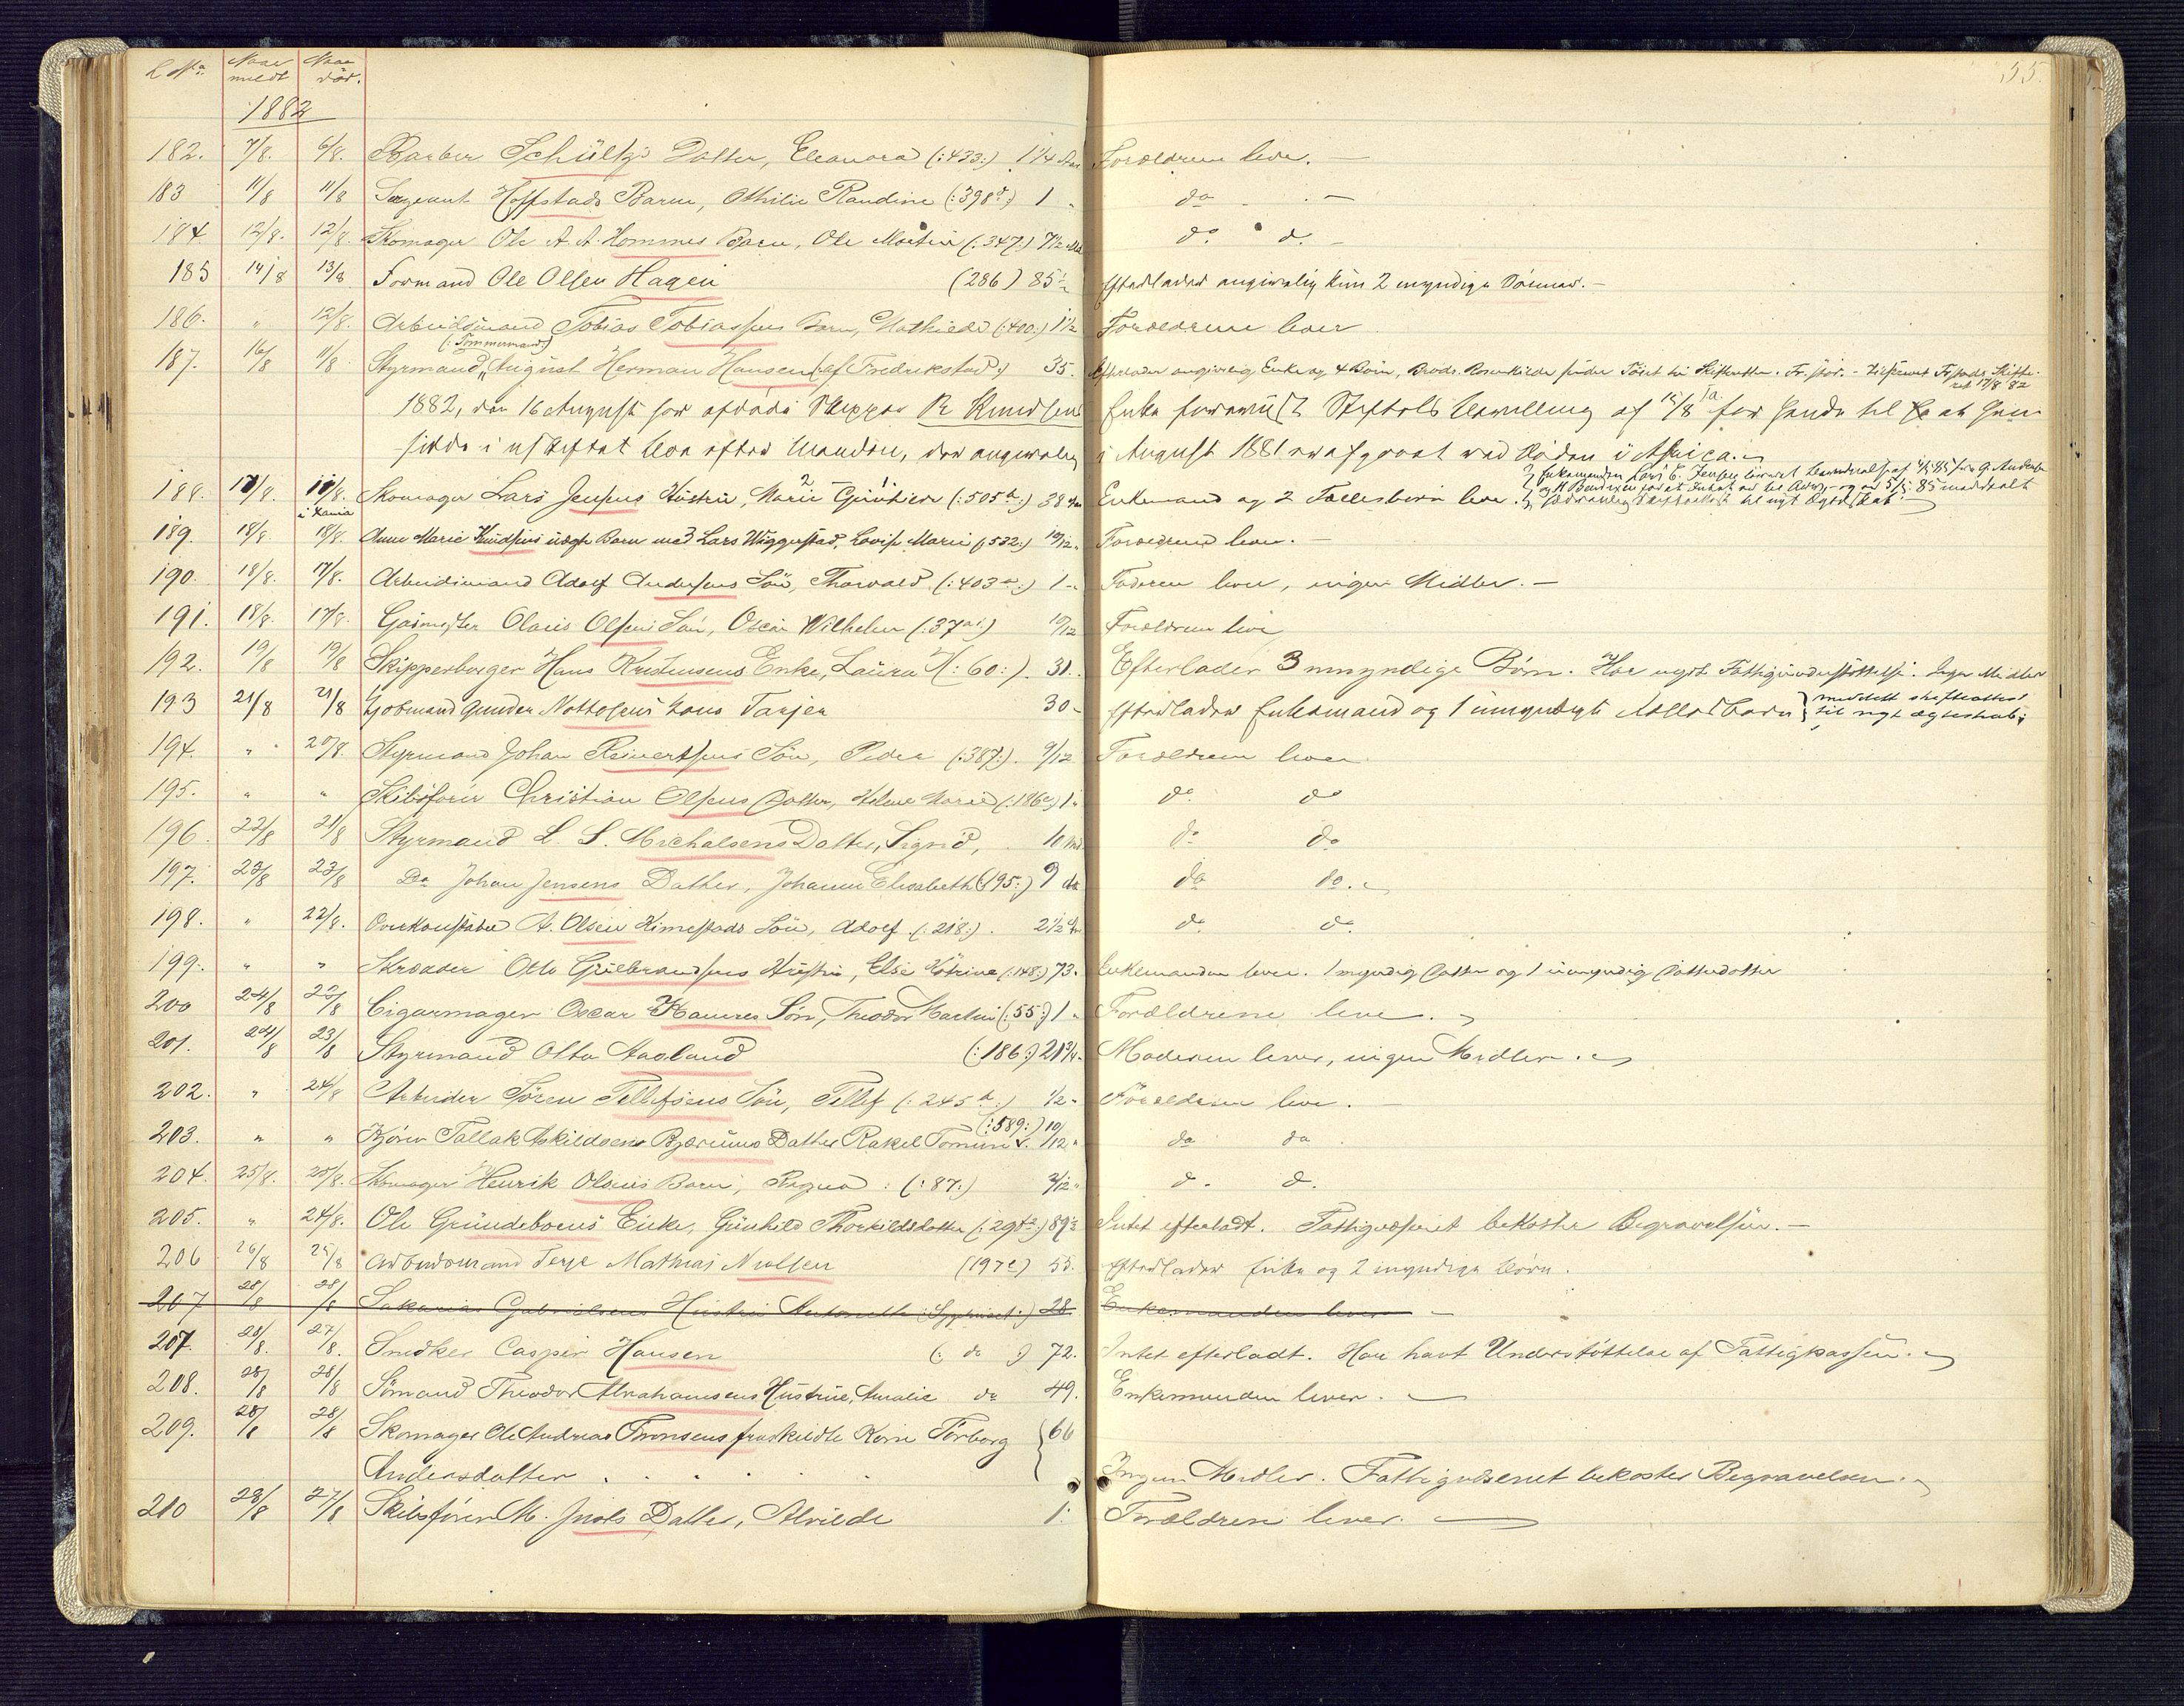 L No. Naar meldt Naar død. 55.
1882
182. 7/8. 6/8. Barber Schültz's Datter, Eleonora (:433:) 1 1/4 Aar Forældrene lever. —
183 11/8 11/8 Sergeant Hoffstads Barn, Othilie Randine (:398d:) 1 " do —
184 12/8. 12/8. Skomager Ole A. A. Hommes Barn, Ole Martin (:347:) 7 1/2 Md do. do. —
185 14/8 13/8 Formand Ole Olsen Hagen (286) 85 1/2 Efterlader angivelig kun 2 myndige Sønner. —
186. " 12/8. Arbeidsmand Tobias Tobiassens Barn, Mathilde (:400:) 1 1/2 Forældrene lever
(:Tømmermand:)
187. 16/8 11/8 Styrmand August Herman Hansen (:af Fredrikstad:) 35. Efterlader angivelig Enke og 4 Børn,
1882, den 16 August har afdøde Skipper R Knudsens Enke foreviist Stiftets Bevilling af for hende til at hen-
sidde i uskiftet Bo efter Manden, der angivelig i August 1881 er afgaaet ved Døden i Africa.
188. 17/8. 11/8. i Xania Skomager Lars Jensens Hustru, Marie Gunhild (:505b:) 38 Aar Enkemand og 2 Fællesbørn lever.
189. 18/8 18/8. Anne Marie Knudsens uægte Barn med Lars Wiggerstad, Lovise Marie (:532:) 10/12 " Forældrene lever. —
190. 18/8. 17/8. Arbeidsmand Adolf Andersens Søn, Thorvald (:403a:) 1 " Faderen lever, ingen Midler. —
191. 18/8. 17/8. Gasmester Olaus Olsens Søn, Oscar Wilhelm (:37a:) 10/12 Forældrene lever
192. 19/8 19/8 Skipperborger Hans Kristensens Enke, Laura (:60:). 31. Efterlader 3 myndige Børn. Har nydt Fattigunderstøttelse. Ingen Midler
193 21/8 21/8 Kjøbmand Gunder Nottosens Kone Tarjer 30 – Efterlader Enkemand og 1 umyndigt Fællesbarn } meddelt skifteattest til nyt ægteskab
194. " 20/8. Styrmand Johan Reinertsens Søn, Peder (:387:). 9/12 Forældrene lever
195. " " Skibsfører Christian Olsens Datter, Helene Marie (:186c:) 1 " do. do
196. 22/8 21/8 Styrmand L. S. Michalsens Datter, Sigrid, 10 Md do do
197. 23/8 23/8 Do Johan Jensens Datter, Johanne Elisabeth (:95:) 9 do do do.
198. " 22/8. Overkonstabel A. Olsen Kimestads Søn, Adolf (:218:). 2 1/2 Aar do. do.
199. " " Skrædder Otto Gulbrandsens Hustru, Else Katrine (:148:) 73. Enkemanden lever. 1 myndig Datter og 1 umyndig Datterdatter
200 24/8 23/8 Cigarmager Oscar Hannes Søn, Theodor Martin (:55:) 1 " Forældrene lever.
201. 24/8 23/8 Styrmand Otto Aagland (:186:) 21 3/4 " Moderen lever, ingen Midler.
202. " 24/8 Arbeider Søren Tellefsens Søn, Tellef (:245b:) 1/2 " Forældrene lever. —
203. " " Kjører Tallak Askildsens Bjørums Datter Rakel Tomine (:589:) 10/12 " do do
204. 25/8. 25/8. Skomager Henrik Olsens Barn, Ragna (:87:) 3/12 " do. do.
205. " 24/8. Ole Grundeboens Enke, Gunhild Thorkildsdatter (:297a:) 89 1/2 Intet efterladt. Fattigvæsenet bekoster Begravelsen. —
206 26/8 25/8 Arbeidsmand Terje Mathias Nielsen (197c) 55. Efterlader Enke og 2 myndige Børn.
207 28/8 28/8 Sakarias Gabrielsens Hustru Antonette (:Sygehuset:) 28. Enkemanden lever —
207. 28/8. 27/8. Snedker Casper Hansen (: do :) 72. Intet efterladt. Har havt Understøttelse af Fattigkassen.
208. 28/8 28/8 Sømand Theodor Abrahamsens Hustrue, Amalie do 49. Enkemanden lever. —
209. 28/8 28/8 Skomager Ole Andreas Thronsens fraskildte Kone Torborg { 66
Andersdatter . . . . . Ingen Midler. Fattigvæsenet bekoster Begravelsen.
210 28/8 27/8 Skibsfører M. Juels Datter, Alvilde 1. Forældrene lever. —